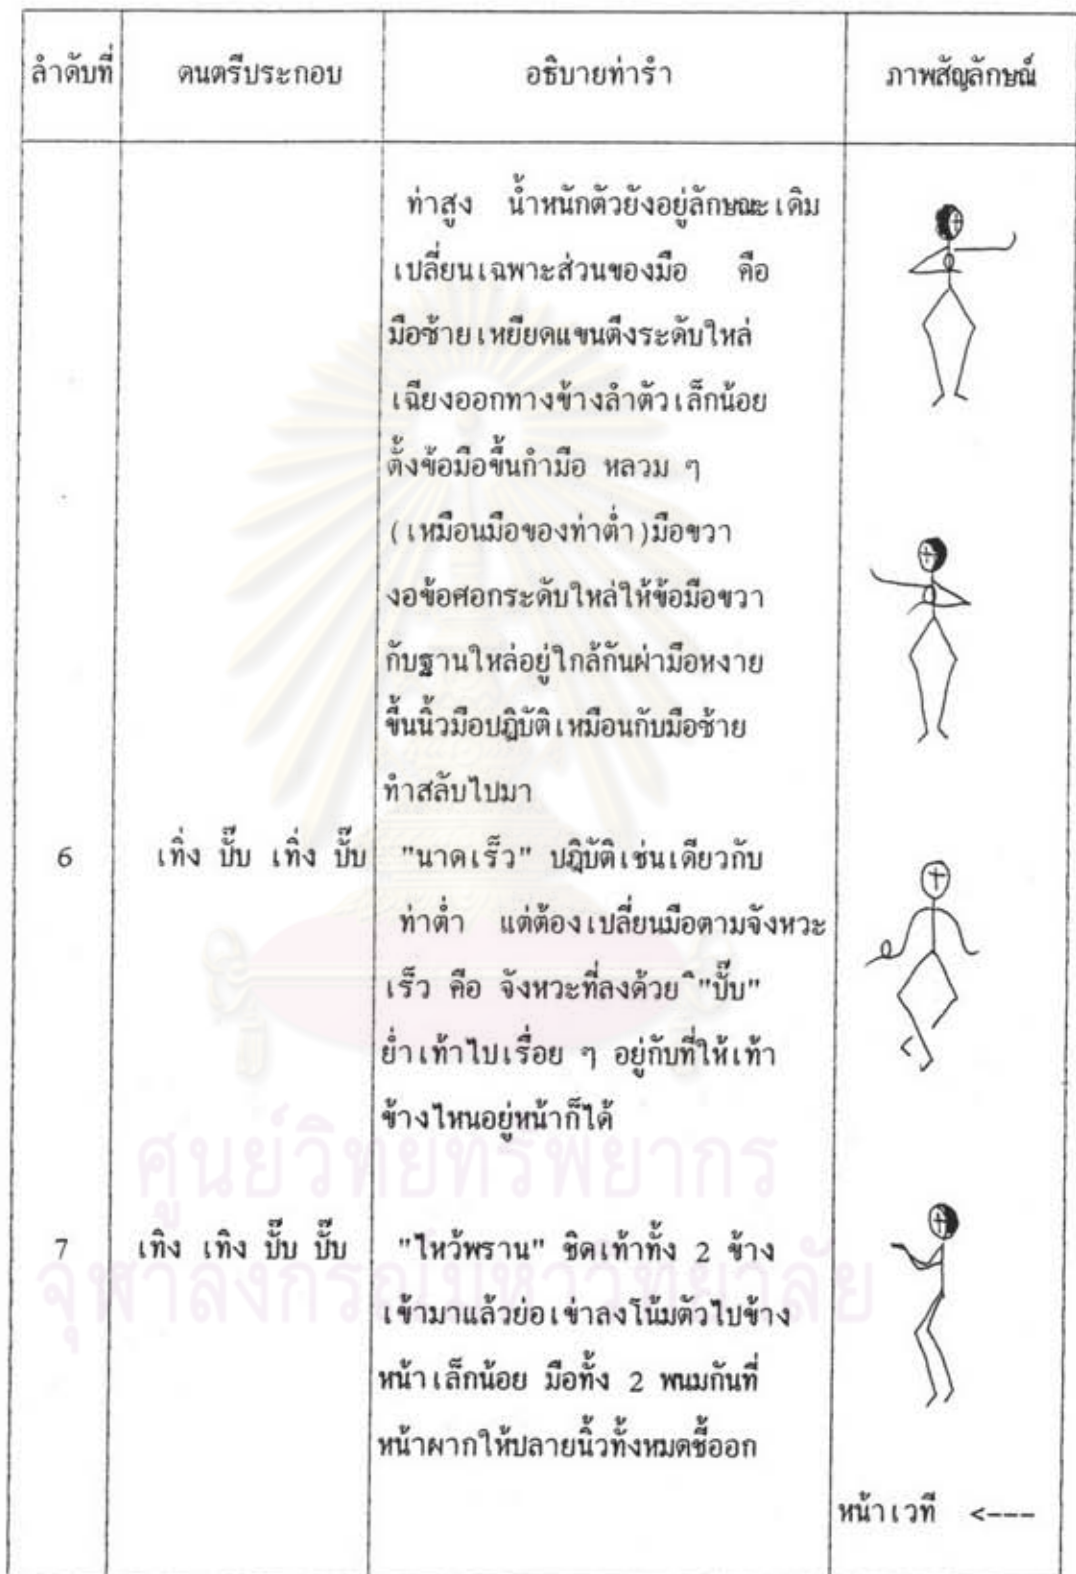 ลำดับที่ ดนตรีประกอบ อธิบายท่ารำ ภาพสัญลักษณ์
ท่าสูง น้ำหนักตัวยังอยู่ลักษณะเดิม
เปลี่ยนเฉพาะส่วนของมือ คือ
มือซ้ายเหยียดแขนตึงระดับใหล่
เฉียงออกทางข้างลำตัวเล็กน้อย
ตั้งข้อมือขึ้นกำมือ หลวม ๆ
(เหมือนมือของท่าต่ำ)มือขวา
งอข้อศอกระดับใหล่ให้ข้อมือขวา
กับฐานใหล่อยู่ใกล้กันฝ่ามือหงาย
ขึ้นนิ้วมือปฏิบัติเหมือนกับมือซ้าย
ทำสลับไปมา
6 เทิ่ง ปั๊บ เทิ่ง ปั๊บ "นาดเร็ว" ปฏิบัติเช่นเดียวกับ
ท่าต่ำ แต่ต้องเปลี่ยนมือตามจังหวะ
เร็ว คือ จังหวะที่ลงด้วย "ปั๊บ"
ย่ำเท้าไปเรื่อย ๆ อยู่กับที่ให้เท้า
ข้างไหนอยู่หน้าก็ได้
ศูนย์วิทยทรัพยากร
7 เทิง เทิง ปั๊บ ปั๊บ "ไหว้พราน" ชิดเท้าทั้ง 2 ข้าง
จุฬาลงกรณ์มหาวิทยาลัย
เข้ามาแล้วย่อเข่าลงโน้มตัวไปข้าง
หน้าเล็กน้อย มือทั้ง 2 พนมกันที่
หน้าผากให้ปลายนิ้วทั้งหมดชี้ออก
หน้าเวที <---